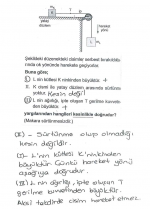 K
T
L
m₁
Şekildeki düzenekteki cisimler serbest bırakıldığında ok yönünde harekete geçiyor.
Buna göre;
I. L nin kütlesi K ninkinden büyüktür. +
II. K cismi ile yatay düzlem arasında sürtünme yoktur. Kesin değil
III. L nin ağırlığı, ipte oluşan T gerilme kuvvetinden büyüktür. +
yargılarından hangileri kesinlikle doğrudur?
(Makara sürtünmesizdir.)
(II) - Sürtünme olup olmadığı
kesin değildir.
(I) L'nin kütlesi K'ninkinden
büyüktür. Çünkü hareket yönü
aşağıya doğrudur.
(III) L nin ağırlığı, ipte oluşan T
gerilme kuvvetinden büyüktür.
Aksi takdirde cisim hareket etmez.